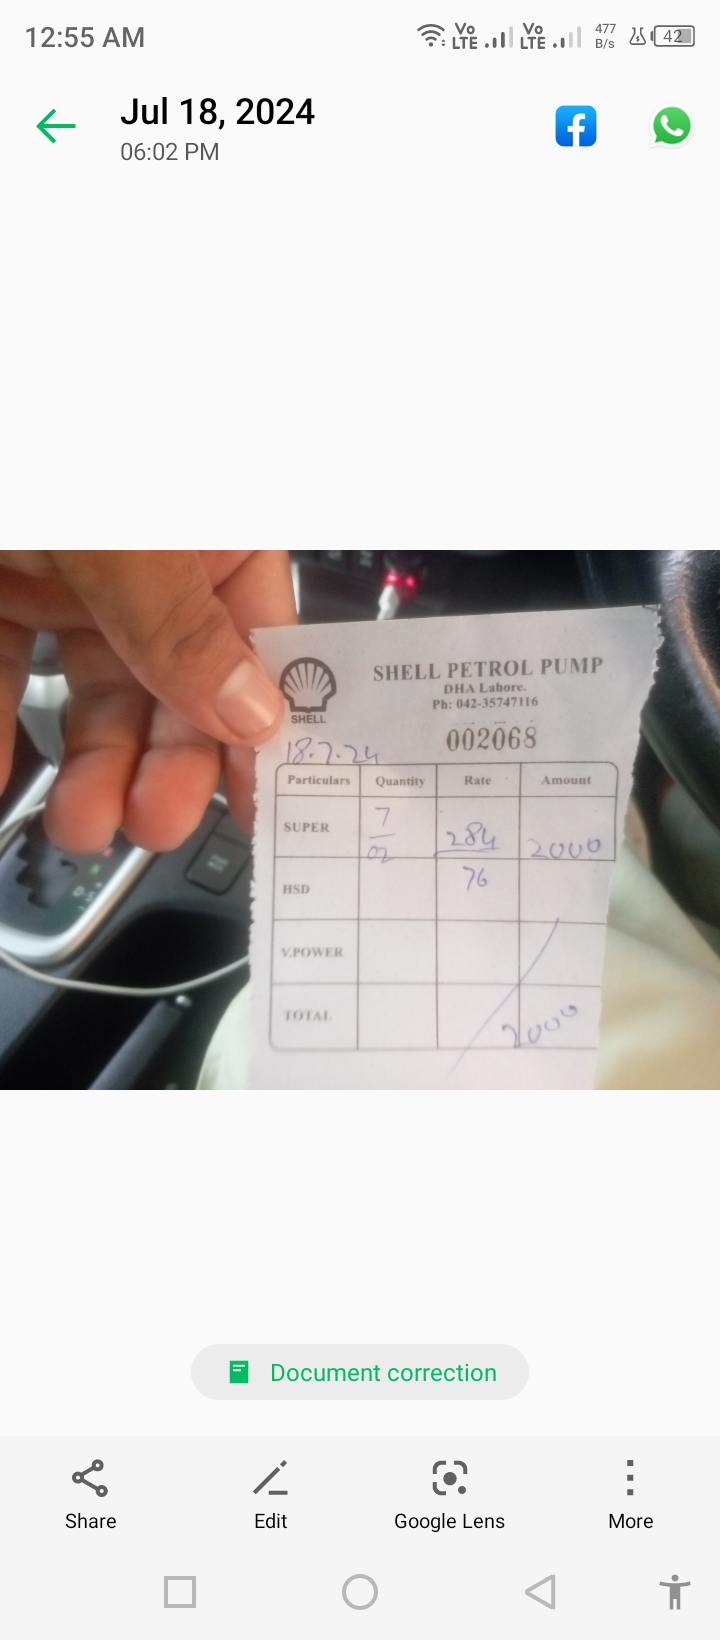 12:55 AM
Vo LTE Vo LTE 477 B/s 42
Jul 18, 2024
06:02 PM
SHELL PETROL PUMP
DHA Lahore.
Ph: 042-35747116
SHELL
002068
18.7.24
Particulars Quantity Rate Amount
SUPER 7/02 284 2000
HSD 76
V.POWER
TOTAL 2000
Document correction
Share Edit Google Lens More